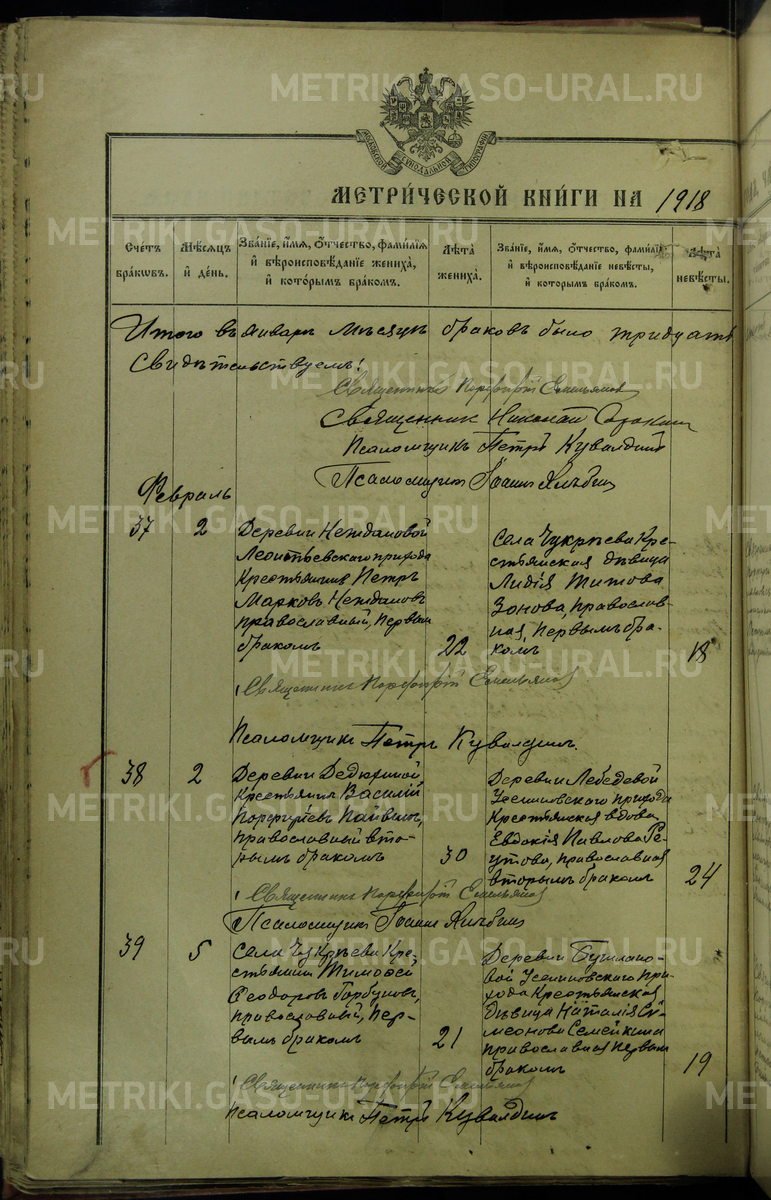 МОСКОВСКОЙ СѴНОДАЛЬНОЙ ТИПОГРАФІИ
МЕТРИ́ЧЕСКОЙ КНИ́ГИ НА 1918
Сче́тъ бра́кωвъ.
Мѣ́сѧцъ и҆ де́нь.
Зва́нїе, и҆́мѧ, ѻ҆́тчество, фами́лїѧ и҆ вѣроисповѣ́данїе жениха̀, и҆ кото́рымъ бра́комъ.
Лѣ́та жениха̀.
Зва́нїе, и҆́мѧ, ѻ҆́тчество, фами́лїѧ и҆ вѣроисповѣ́данїе невѣ́сты, и҆ которымъ бра́комъ.
Лѣ́та невѣ́сты.
Итого въ Январѣ мѣсяцѣ браковъ было тридцать
Свидѣтельствуемъ:
Священникъ Порфирій Емельянов
Священник Николай
Псаломщикъ Петръ Кувалдинъ
Псаломщик Іоанн
Февраль
37
2
Деревни Неждановой
Леонтьевскаго прихода
крестьянин Петръ
Марковъ Неждановъ
православный, первым
бракомъ
22
Села Чукрѣева кре-
стьянская дѣвица
Лидія Титова
Зонова, православ-
ная, первымъ бра-
комъ
18
Священникъ Порфирій Емельянов
Псаломщик Петръ Кувалдинъ.
38
2
Деревни Дедюриной
крестьянин Василій
Порфирьевъ
православный вто-
рымъ бракомъ
30
Деревни Лебедевой
Усениновскаго прихода
крестьянская вдова
Евдокія Павлова Ре-
утова, православная
вторымъ бракомъ
24
Священникъ Порфирій Емельянов
Псаломщик Іоанн
39
5
Села Чукрѣева кре-
стьянин Тимоѳей
Ѳеодоровъ Горбуновъ,
православный, пер-
вымъ бракомъ
21
Деревни Бушлано-
вой Усениновскаго при-
хода крестьянская
дѣвица Наталія Си-
меонова Семейкина
православная первым
бракомъ
19
Священникъ Порфирій Емельянов
Псаломщик Петръ Кувалдинъ
METRIKI.GASO-URAL.RU